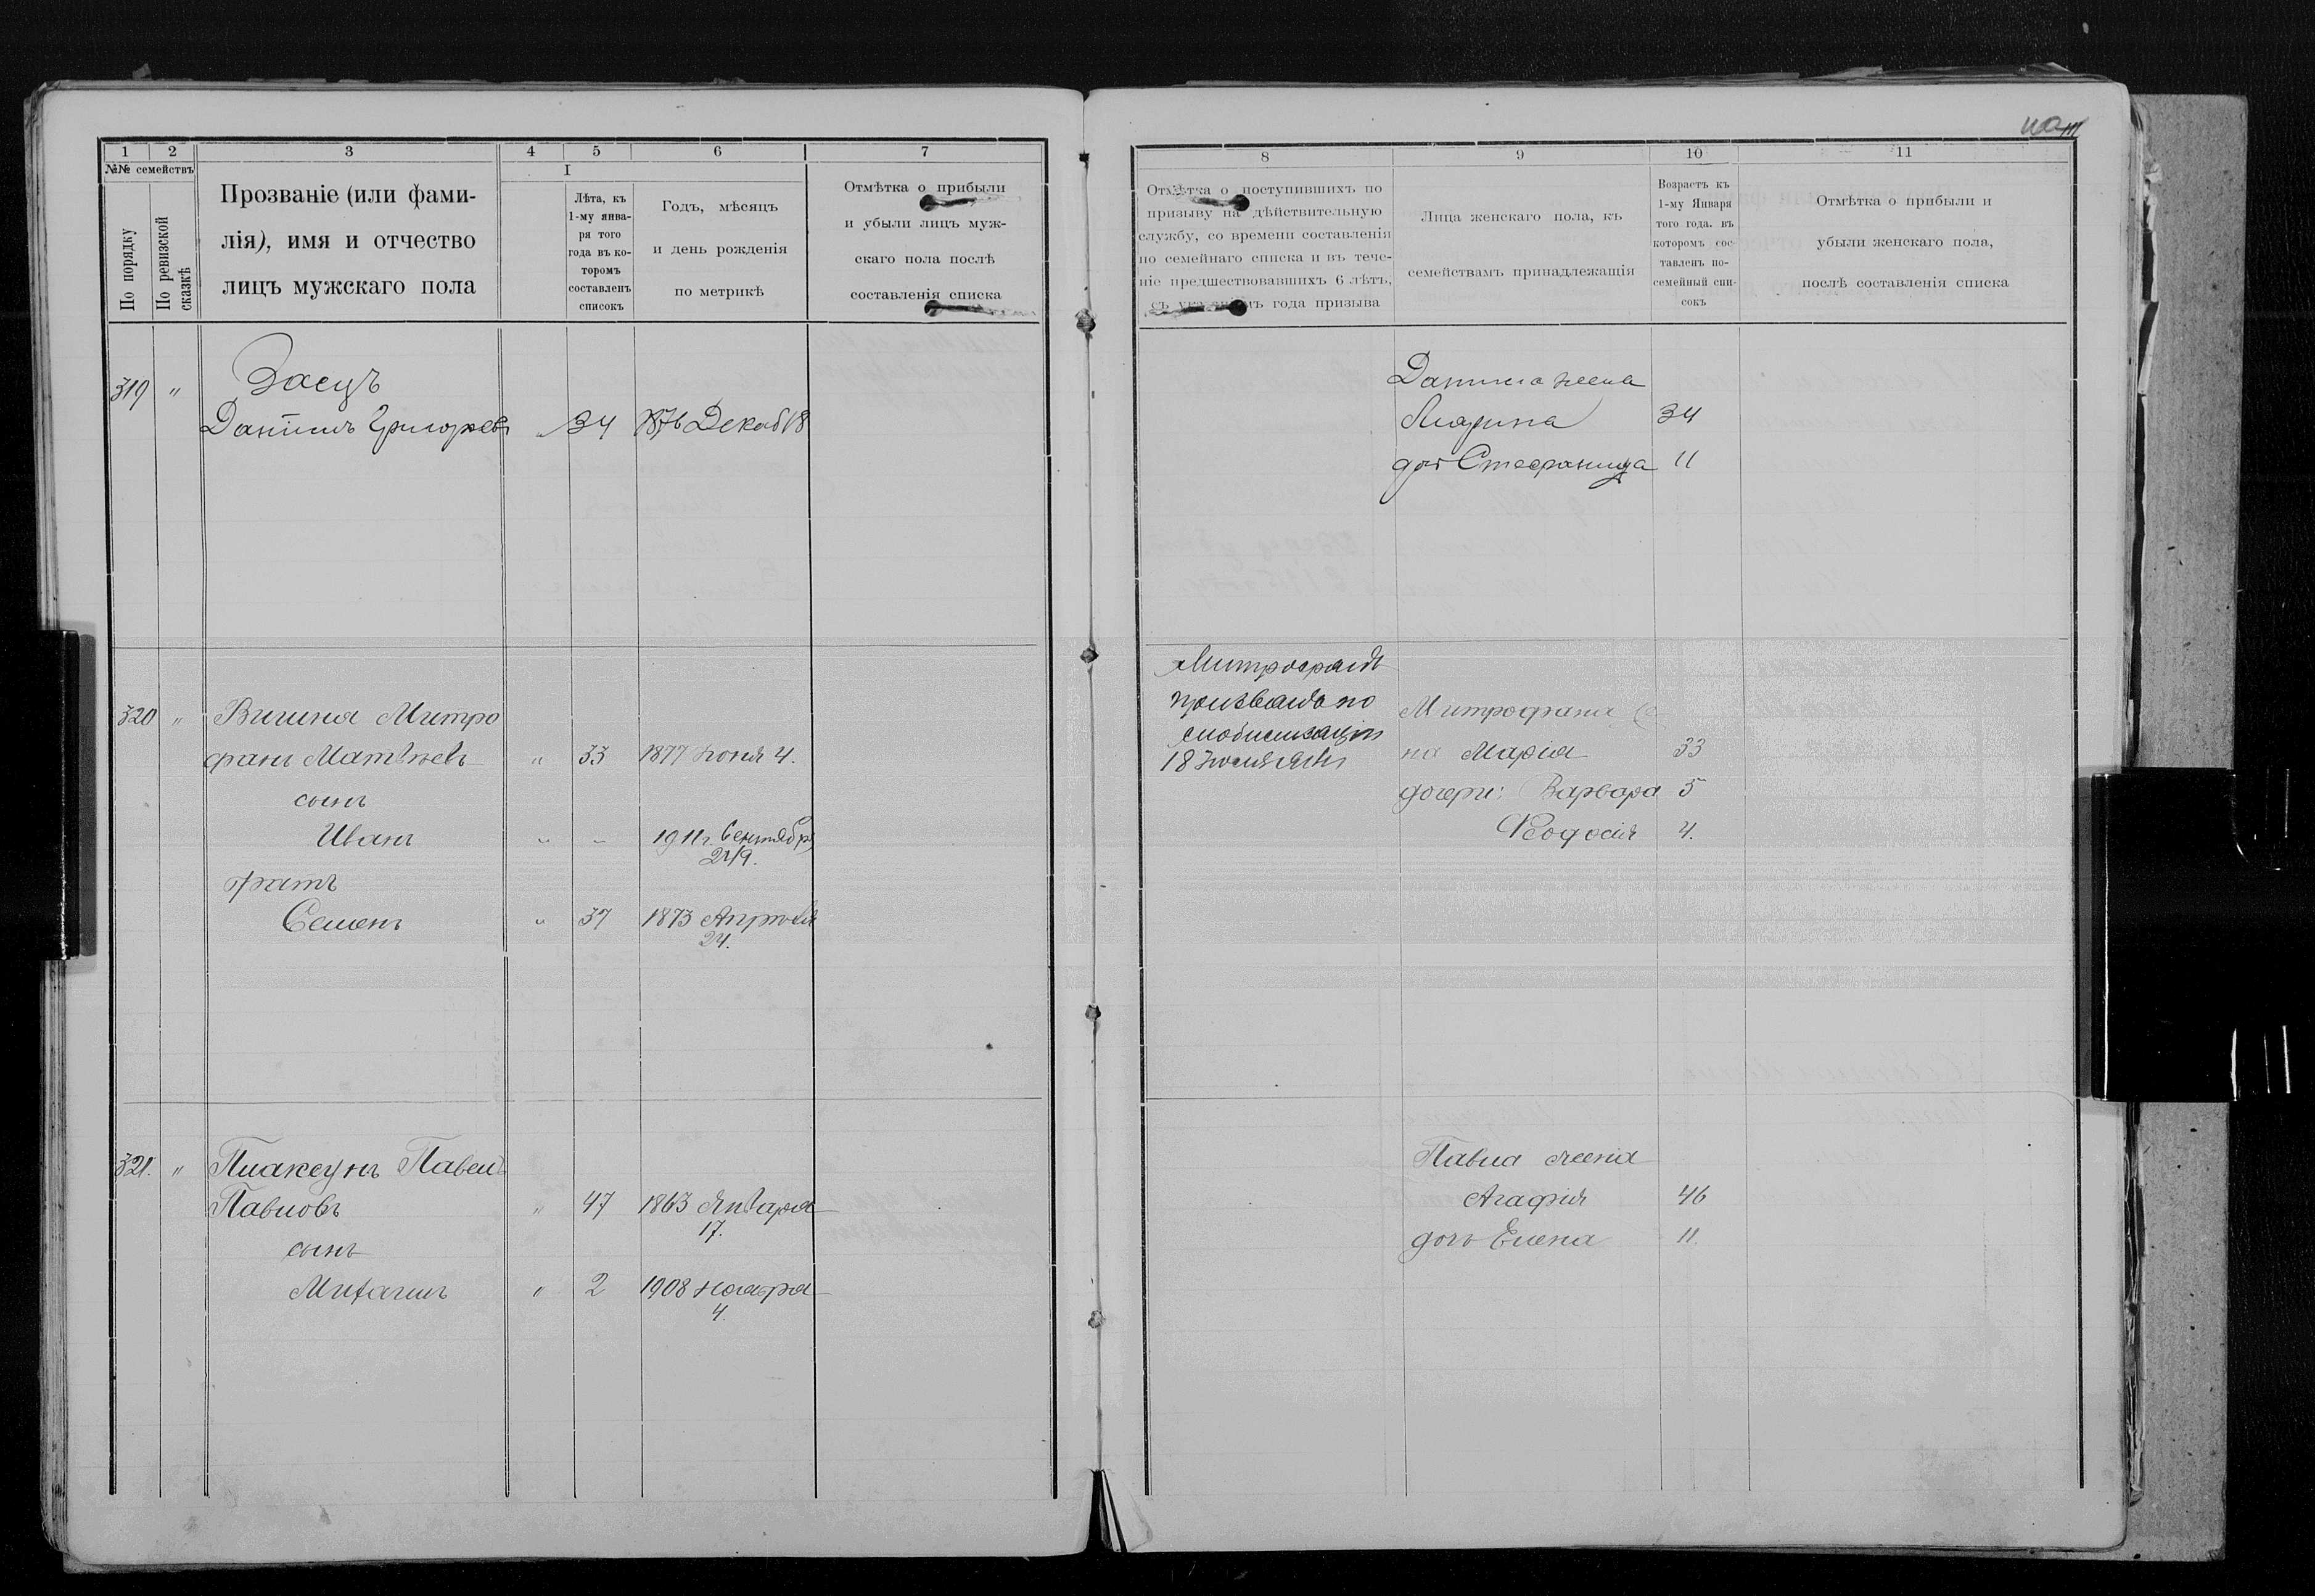 1 2 3 4 5 6 7
№№ семействъ
По порядку
По ревизской сказкѣ
Прозваніе (или фами-
лія), имя и отчество
лицъ мужскаго пола
I
Лѣта, къ
1-му янва-
ря того
года въ ко-
торомъ
составленъ
списокъ
Годъ, мѣсяцъ
и день рожденія
по метрикѣ
Отмѣтка о прибыли
и убыли лицъ муж-
скаго пола послѣ
составленія списка
319 „ Заецъ
Даніилъ Григорьевъ „ 34 1876 Декаб 18
320 „ Вишня Митро
фанъ Матвѣевъ „ 33 1877 Іюня 4.
сынъ
Иванъ „ - 1911 г. Сентября
братъ
Семенъ „ 37 1873 Апрѣля
24.
321. „ Плаксунъ Павелъ
Павловъ „ 47 1863 Января
17.
сынъ
Михаилъ „ 2 1908 Ноября
4.
8 9 10 11
Отмѣтка о поступившихъ по
призыву на дѣйствительную
службу, со времени составленія
по семейнаго списка и въ тече-
ніе предшествовавшихъ 6 лѣтъ,
съ указаніемъ года призыва
Лица женскаго пола, къ
семействамъ принадлежащія
Возрастъ къ
1-му Января
того года. въ
которомъ сос-
тавленъ по-
семейный спи-
сокъ
Отмѣтка о прибыли и
убыли женскаго пола,
послѣ составленія списка
Даніила жена
Марина 34
доч Стефанида 11
Митрофанъ
призванъ по
мобилизаціи
18 Іюля
Митрофана
на Марія 33
дочери: Варвара 5
Ѳеодосія 4.
Павла жена
Агафія 46
дочь Елена 11.